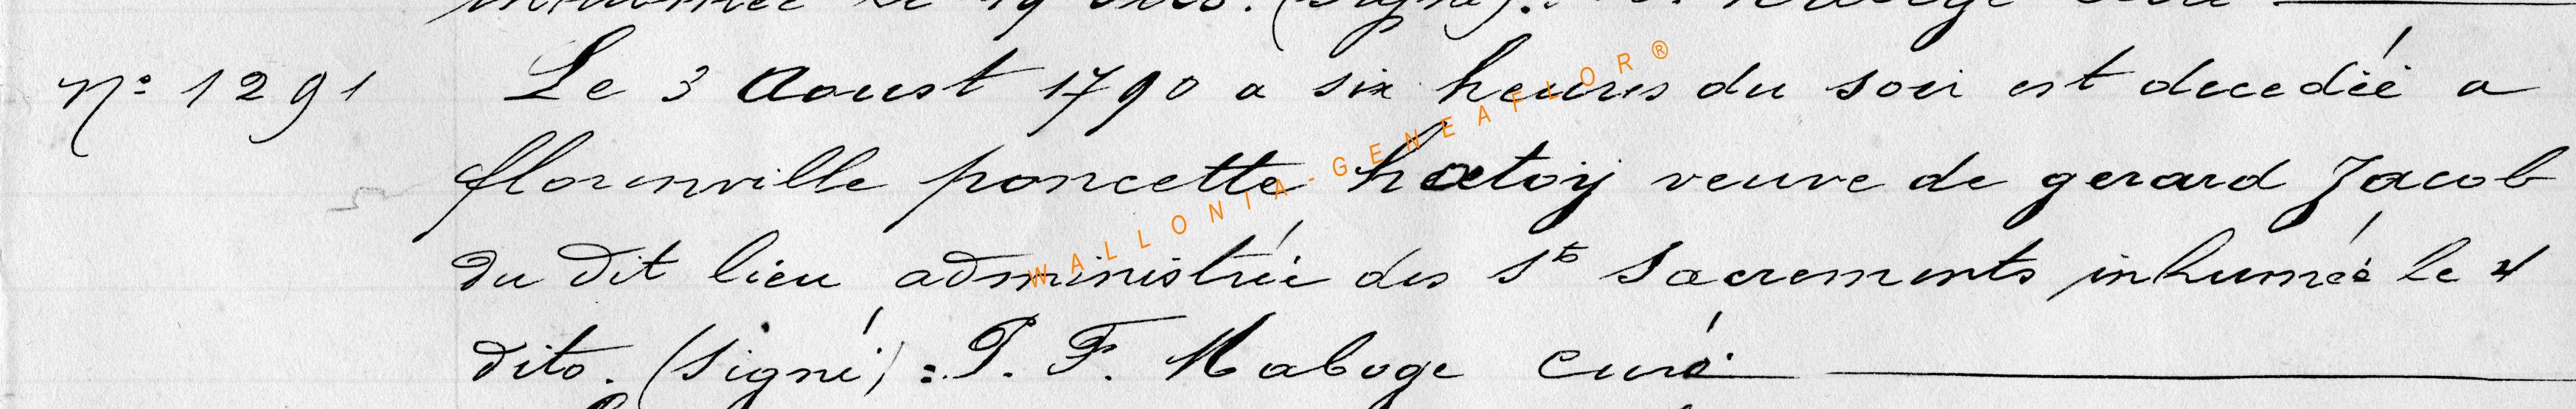 le 19 dito. (signé):
n° 1291 Le 3 Aoust 1790 a six heures du soir est decedée a
florenville poncette hatoy veuve de gerard Jacob
du dit lieu administrée des Sts Sacrements inhumée le 4
dito. (signé) : P. F. Maboge curé
WALLONIA-GENEAFLOR®